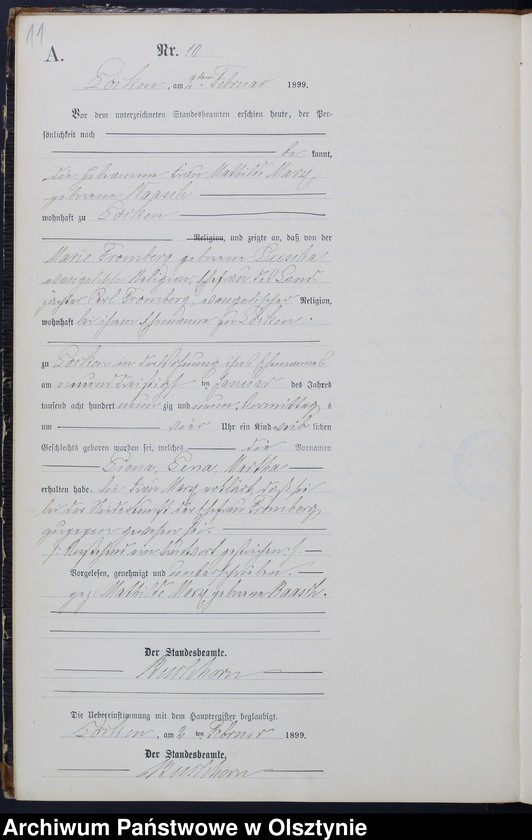 11
A.
Nr. 10
am 2ten Februar 1899.
Vor dem unterzeichneten Standesbeamten erschien heute, der Per-
sönlichkeit nach
be kannt,
die Hebamme Frau Mathilde Marx,
geborene Raasch
wohnhaft zu
Religion, und zeigte an, daß von der
Marie Fromberg geborene
evangelischer Religion, Ehefrau des Land
Carl Fromberg, evangelischer Religion,
wohnhaft bei ihrem Ehemanne zu
zu in der Wohnung ihres Ehemannes
am neunundzwanzigsten ten Januar des Jahres
tausend acht hundert neun zig und neun, Vormittag s
um vier Uhr ein Kind weib lichen
Geschlechts geboren worden sei, welches die Vornamen
Lena, Martha
erhalten habe. die Frau Marx erklärt, daß sie
bei der Niederkunft der Ehefrau Fromberg,
zugegen gewesen sei.
/: Vorstehend ein Druckwort gestrichen :/
Vorgelesen, genehmigt und unterschrieben.
gez: Mathilde Marx, geborene Raasch.
Der Standesbeamte.
Die Uebereinstimmung mit dem Hauptregister beglaubigt.
am 2 ten Februar 1899.
Der Standesbeamte.
Archiwum Państwowe w Olsztynie